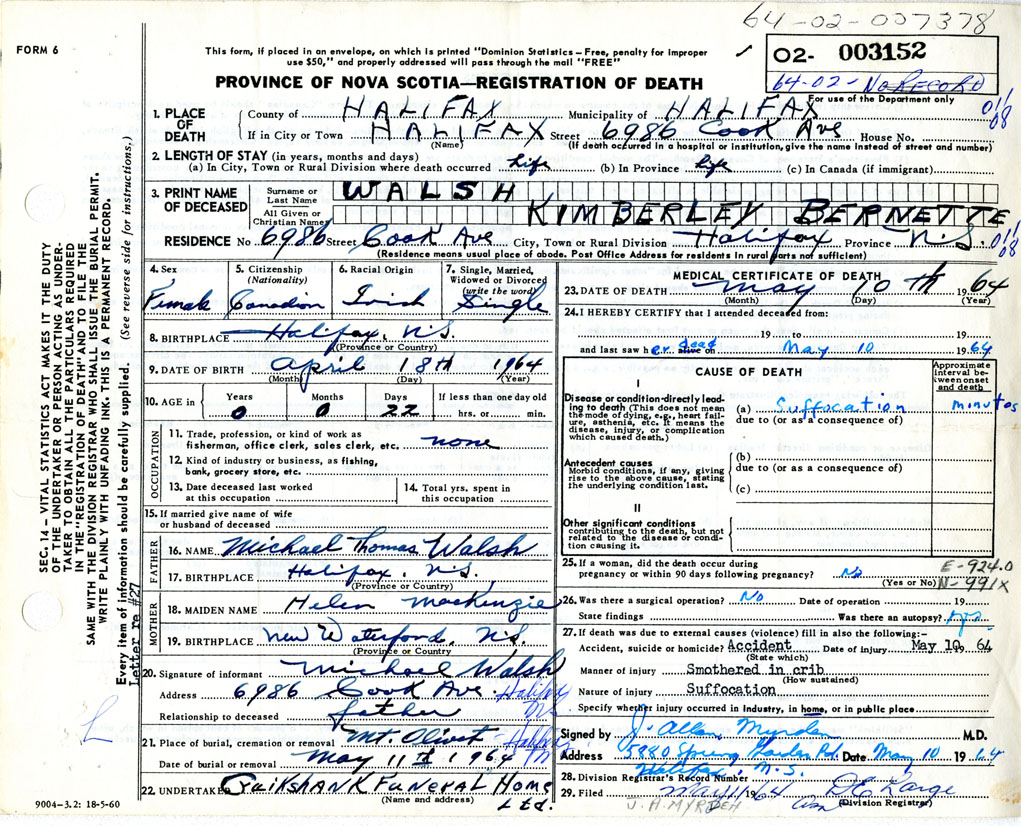 64-02-007378
FORM 6
This form, if placed in an envelope, on which is printed "Dominion Statistics—Free, penalty for improper
use $50," and properly addressed will pass through the mail "FREE"
02- 003152
64-02- No RECORD
For use of the Department only
PROVINCE OF NOVA SCOTIA—REGISTRATION OF DEATH
011
08
1. PLACE OF DEATH
County of HALIFAX Municipality of HALIFAX
If in City or Town HALIFAX Street 6986 Cook Ave House No.
(Name) (If death occurred in a hospital or institution, give the name instead of street and number)
2. LENGTH OF STAY (in years, months and days)
(a) In City, Town or Rural Division where death occurred Life (b) In Province Life (c) In Canada (if immigrant)
3. PRINT NAME OF DECEASED
Surname or Last Name WALSH
All Given or Christian Names KIMBERLEY BERNETTE
RESIDENCE No 6986 Street Cook Ave City, Town or Rural Division Halifax Province N.S. 011
08
(Residence means usual place of abode. Post Office Address for residents in rural parts not sufficient)
4. Sex Female
5. Citizenship (Nationality) Canadian
6. Racial Origin Irish
7. Single, Married, Widowed or Divorced (write the word) Single
8. BIRTHPLACE Halifax, N.S.
(Province or Country)
9. DATE OF BIRTH April 18th 1964
(Month) (Day) (Year)
10. AGE in Years 0 Months 0 Days 22 If less than one day old
hrs. or min.
OCCUPATION
11. Trade, profession, or kind of work as
fisherman, office clerk, sales clerk, etc. none
12. Kind of industry or business, as fishing,
bank, grocery store, etc.
13. Date deceased last worked
at this occupation
14. Total yrs. spent in
this occupation
15. If married give name of wife
or husband of deceased
FATHER
16. NAME Michael Thomas Walsh
17. BIRTHPLACE Halifax, N.S.
(Province or Country)
MOTHER
18. MAIDEN NAME Helen MacKenzie
19. BIRTHPLACE New Waterford, N.S.
(Province or Country)
20. Signature of informant Michael Walsh
Address 6986 Cook Ave. Halifax
N.S.
Relationship to deceased father
21. Place of burial, cremation or removal Mt. Olivet - Halifax
Date of burial or removal May 11th 1964
22. UNDERTAKER Cruikshank Funeral Home
Ltd.
(Name and address)
9004—3.2: 18-5-60
MEDICAL CERTIFICATE OF DEATH
23. DATE OF DEATH May 10th 1964
(Month) (Day) (Year)
24. I HEREBY CERTIFY that I attended deceased from:
19 to 19
and last saw her dead alive on May 10 1964
CAUSE OF DEATH
Approximate interval between onset and death
I
Disease or condition directly leading to death (This does not mean
the mode of dying, e.g., heart failure, asthenia, etc. It means the
disease, injury, or complication
which caused death.)
(a) Suffocation minutes
due to (or as a consequence of)
Antecedent causes
Morbid conditions, if any, giving
rise to the above cause, stating
the underlying condition last.
(b)
due to (or as a consequence of)
(c)
II
Other significant conditions
contributing to the death, but not
related to the disease or condition causing it.
25. If a woman, did the death occur during
pregnancy or within 90 days following pregnancy? No
(Yes or No)
E-924.0
N-991X
26. Was there a surgical operation? No Date of operation 19
State findings Was there an autopsy? yes
27. If death was due to external causes (violence) fill in also the following:—
Accident, suicide or homicide? Accident Date of injury May 10, 1964
(State which)
Manner of injury Smothered in crib
(How sustained)
Nature of injury Suffocation
Specify whether injury occurred in industry, in home, or in public place
Signed by J. Allan Myrden M.D.
Address 5880 Spring Garden Rd. Date May 10 1964
Halifax, N.S.
28. Division Registrar's Record Number
29. Filed May 11/64
(Division Registrar)
J. A. MYRDEN
SEC. 14—VITAL STATISTICS ACT MAKES IT THE DUTY
OF THE UNDERTAKER OR PERSON ACTING AS UNDER-
TAKER TO OBTAIN ALL THE PARTICULARS REQUIRED
IN THE "REGISTRATION OF DEATH" AND TO FILE THE
SAME WITH THE DIVISION REGISTRAR WHO SHALL ISSUE THE BURIAL PERMIT.
WRITE PLAINLY WITH UNFADING INK. THIS IS A PERMANENT RECORD.
Every item of information should be carefully supplied. (See reverse side for instructions.)
Letter re #27